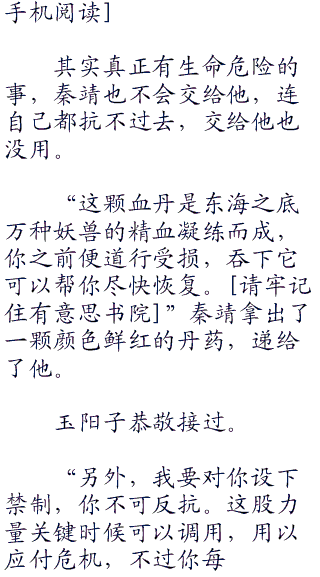 手机阅读]
其实真正有生命危险的
事，秦靖也不会交给他，连
自己都抗不过去，交给他也
没用。
“这颗血丹是东海之底
万种妖兽的精血凝练而成，
你之前便道行受损，吞下它
可以帮你尽快恢复。[请牢记
住有意思书院]”秦靖拿出了
一颗颜色鲜红的丹药，递给
了他。
玉阳子恭敬接过。
“另外，我要对你设下
禁制，你不可反抗。这股力
量关键时候可以调用，用以
应付危机，不过你每